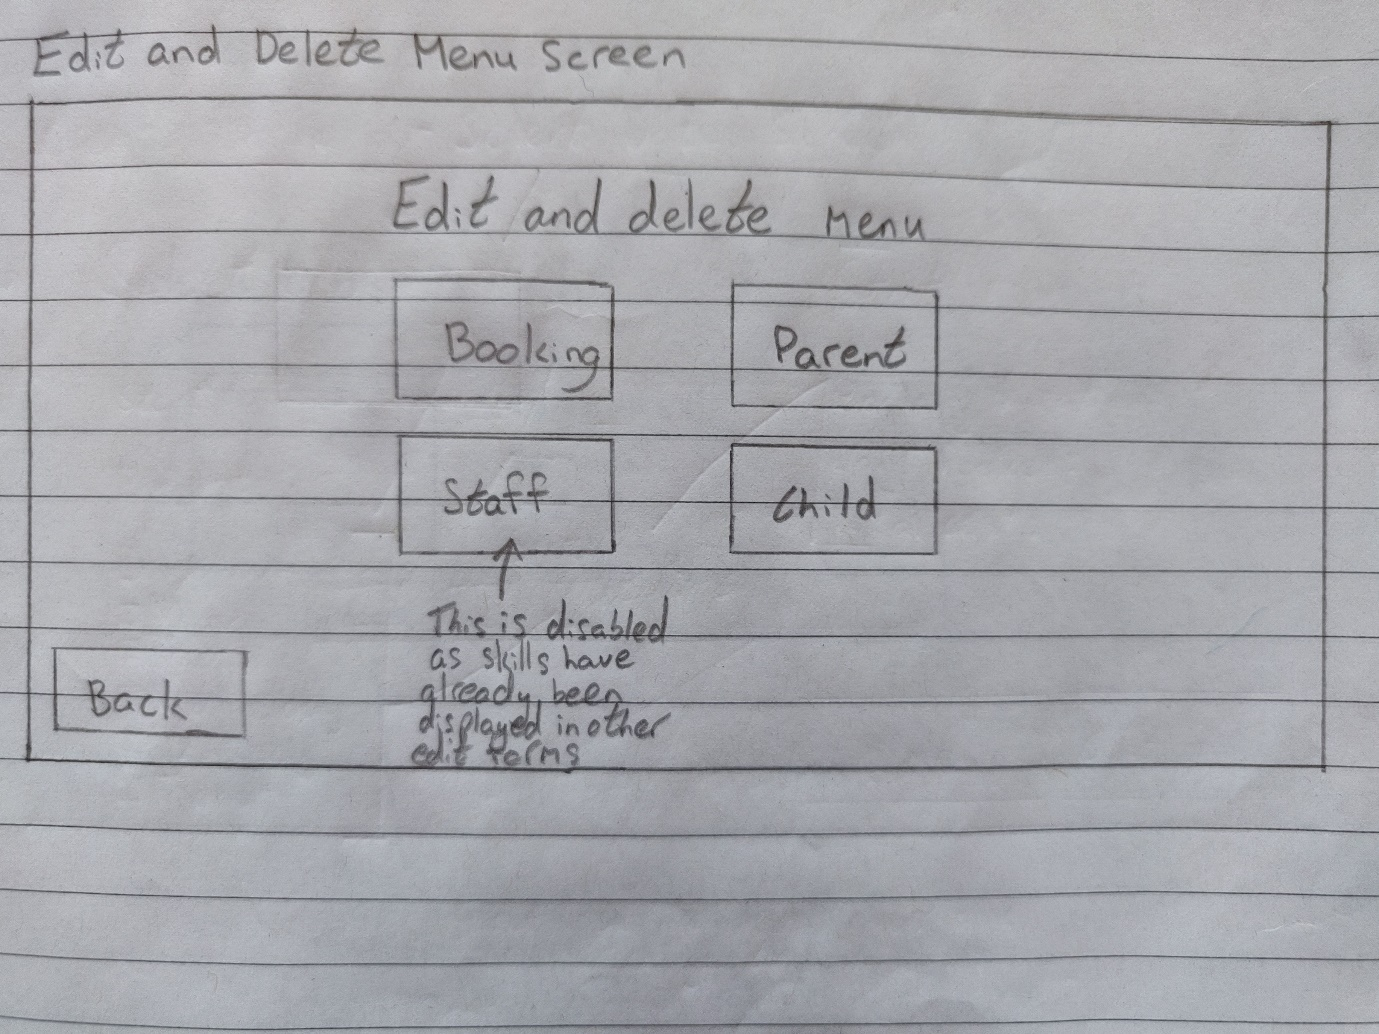 Edit and Delete Menu Screen
Edit and delete Menu
Booking
Parent
Staff
Child
This is disabled
as skills have
already been
displayed in other
edit forms
Back